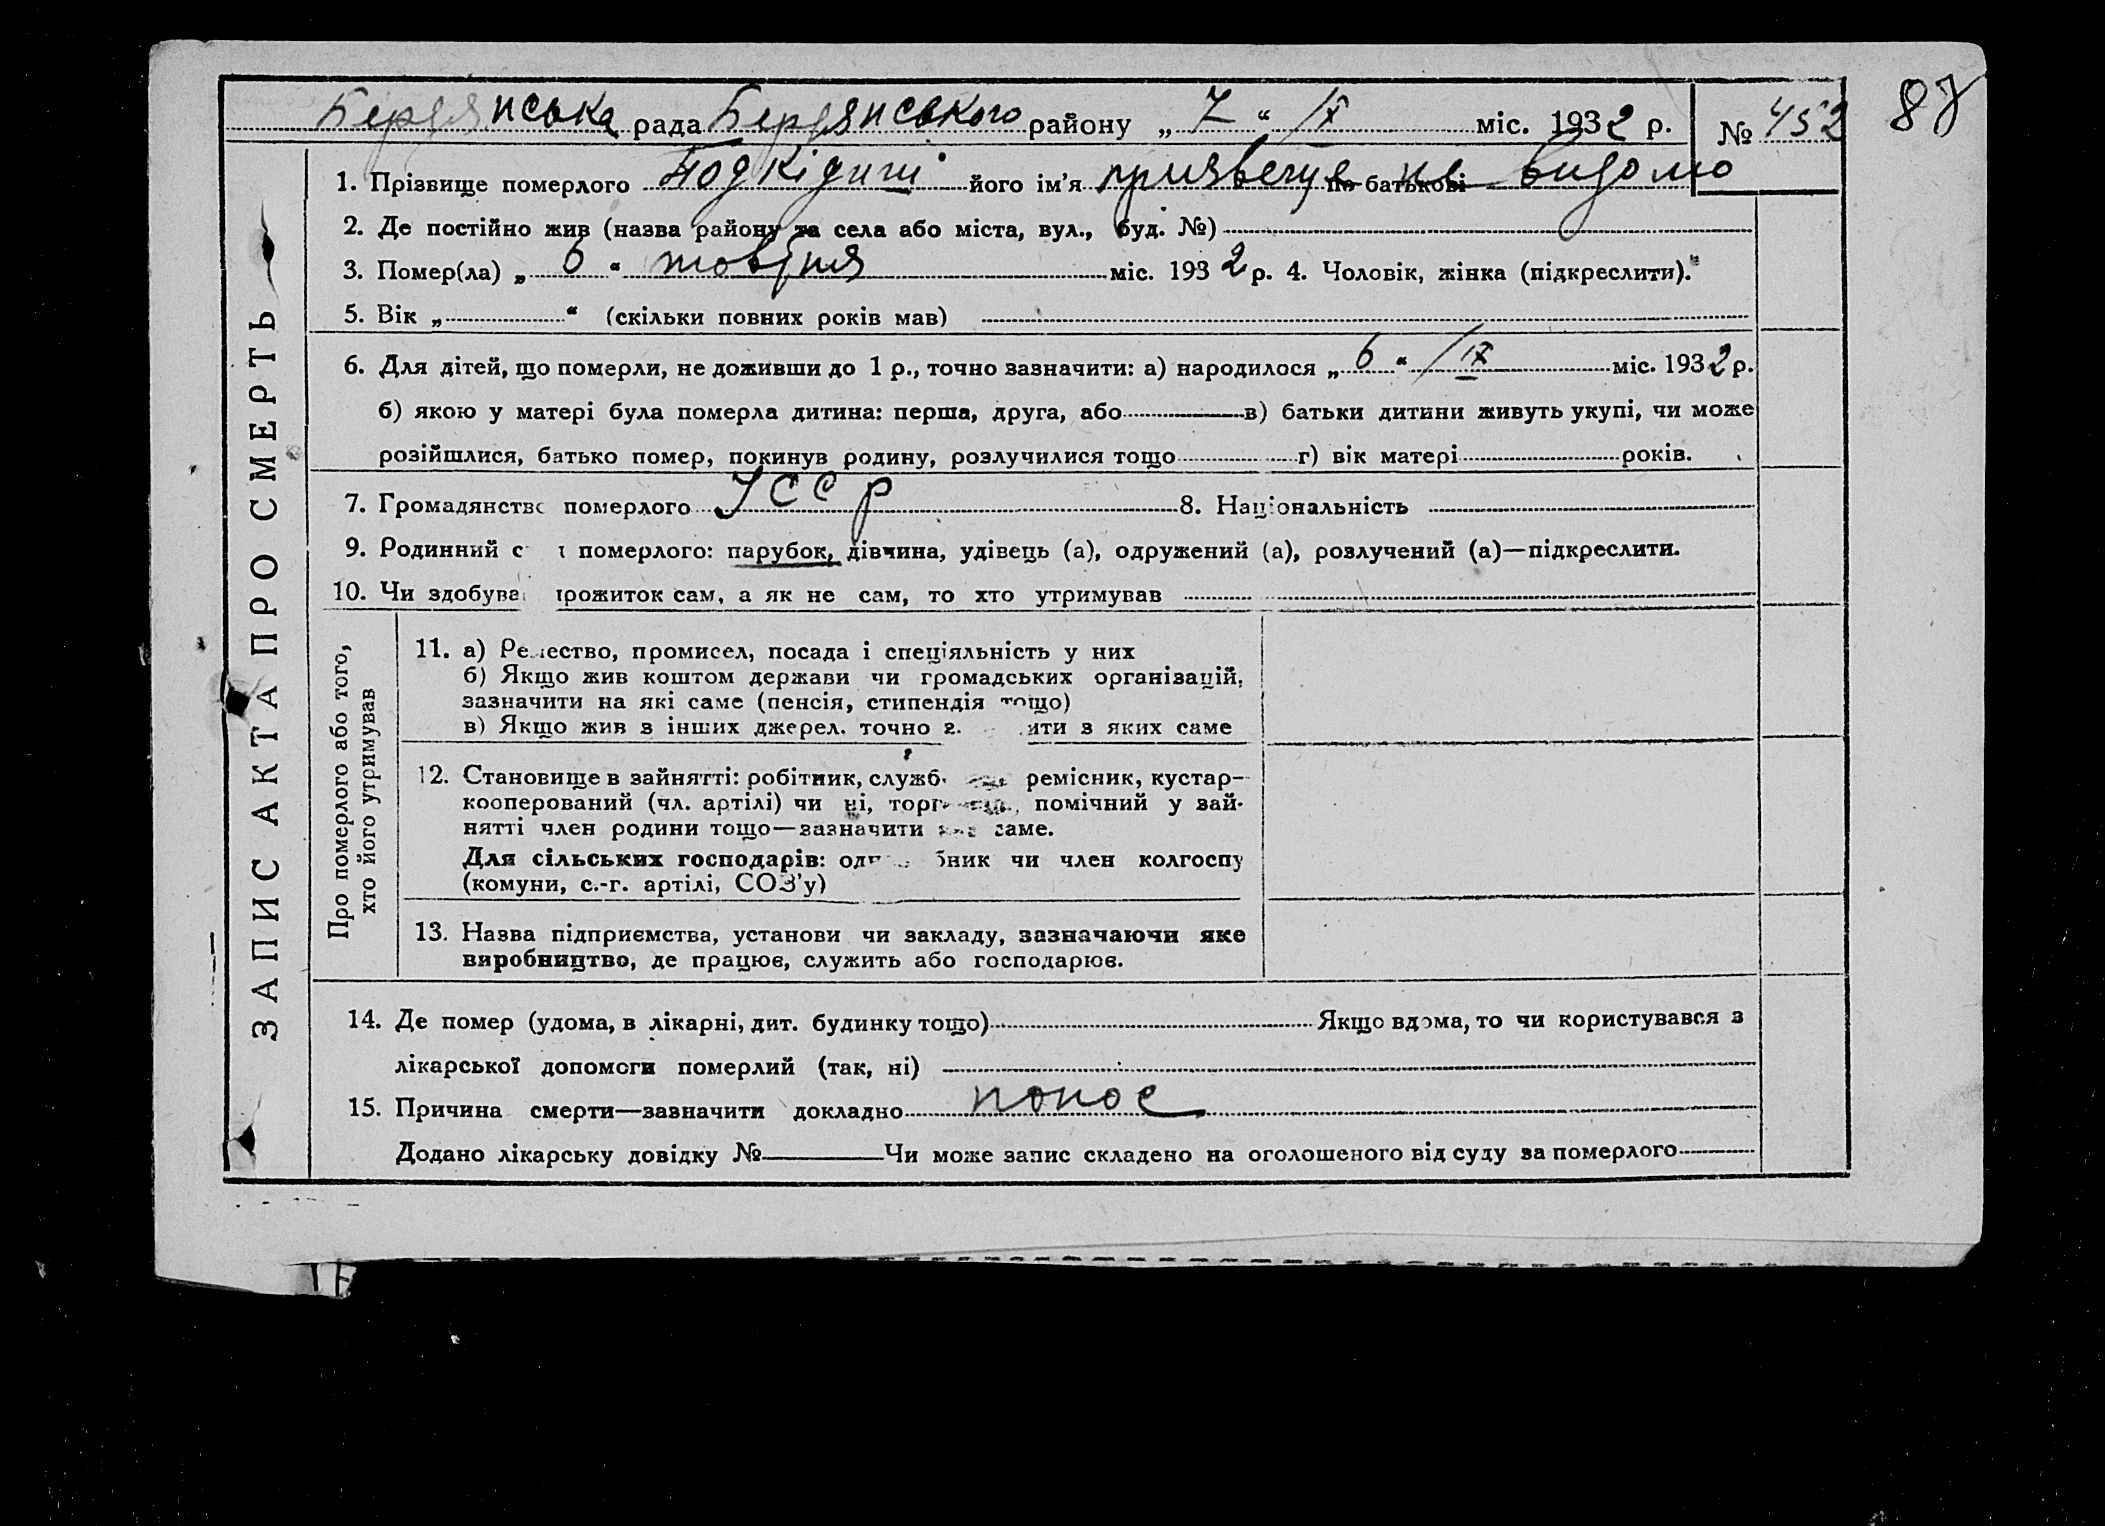 Бердянська рада Бердянського району „ 7 “ IX міс. 1932 р. № 452 87
1. Прізвище померлого Подкідиш його ім’я призвеще по батькові не видомо
2. Де постійно жив (назва району та села або міста, вул., буд. №)
3. Помер(ла) „ 6 “ жовтня міс. 1932 р. 4. Чоловік, жінка (підкреслити).
5. Вік „ “ (скільки повних років мав)
6. Для дітей, що померли, не доживши до 1 р., точно зазначити: а) народилося „ 6 “ IX міс. 1932 р.
б) якою у матері була померла дитина: перша, друга, або в) батьки дитини живуть укупі, чи може
розійшлися, батько помер, покинув родину, розлучилися тощо г) вік матері років.
7. Громадянство померлого УССР 8. Національність
9. Родинний с померлого: парубок, дівчина, удівець (а), одружений (а), розлучений (а)—підкреслити.
10. Чи здобува прожиток сам, а як не сам, то хто утримував
ЗАПИС АКТА ПРО СМЕРТЬ
Про померлого або того,
хто його утримував
11. а) Ремество, промисел, посада і спеціяльність у них
б) Якщо жив коштом держави чи громадських організацій,
зазначити на які саме (пенсія, стипендія тощо)
в) Якщо жив з інших джерел, точно з ити з яких саме
12. Становище в зайнятті: робітник, служб ремісник, кустар-
кооперований (чл. артілі) чи ні, торг помічний у зай-
нятті член родини тощо—зазначити саме.
Для сільських господарів: одн бник чи член колгоспу
(комуни, с.-г. артілі, СОЗ’у)
13. Назва підприємства, установи чи закладу, зазначаючи яке
виробництво, де працює, служить або господарює.
14. Де помер (удома, в лікарні, дит. будинку тощо) Якщо вдома, то чи користувався з
лікарської допомоги померлий (так, ні)
15. Причина смерти—зазначити докладно понос
Додано лікарську довідку № Чи може запис складено на оголошеного від суду за померлого